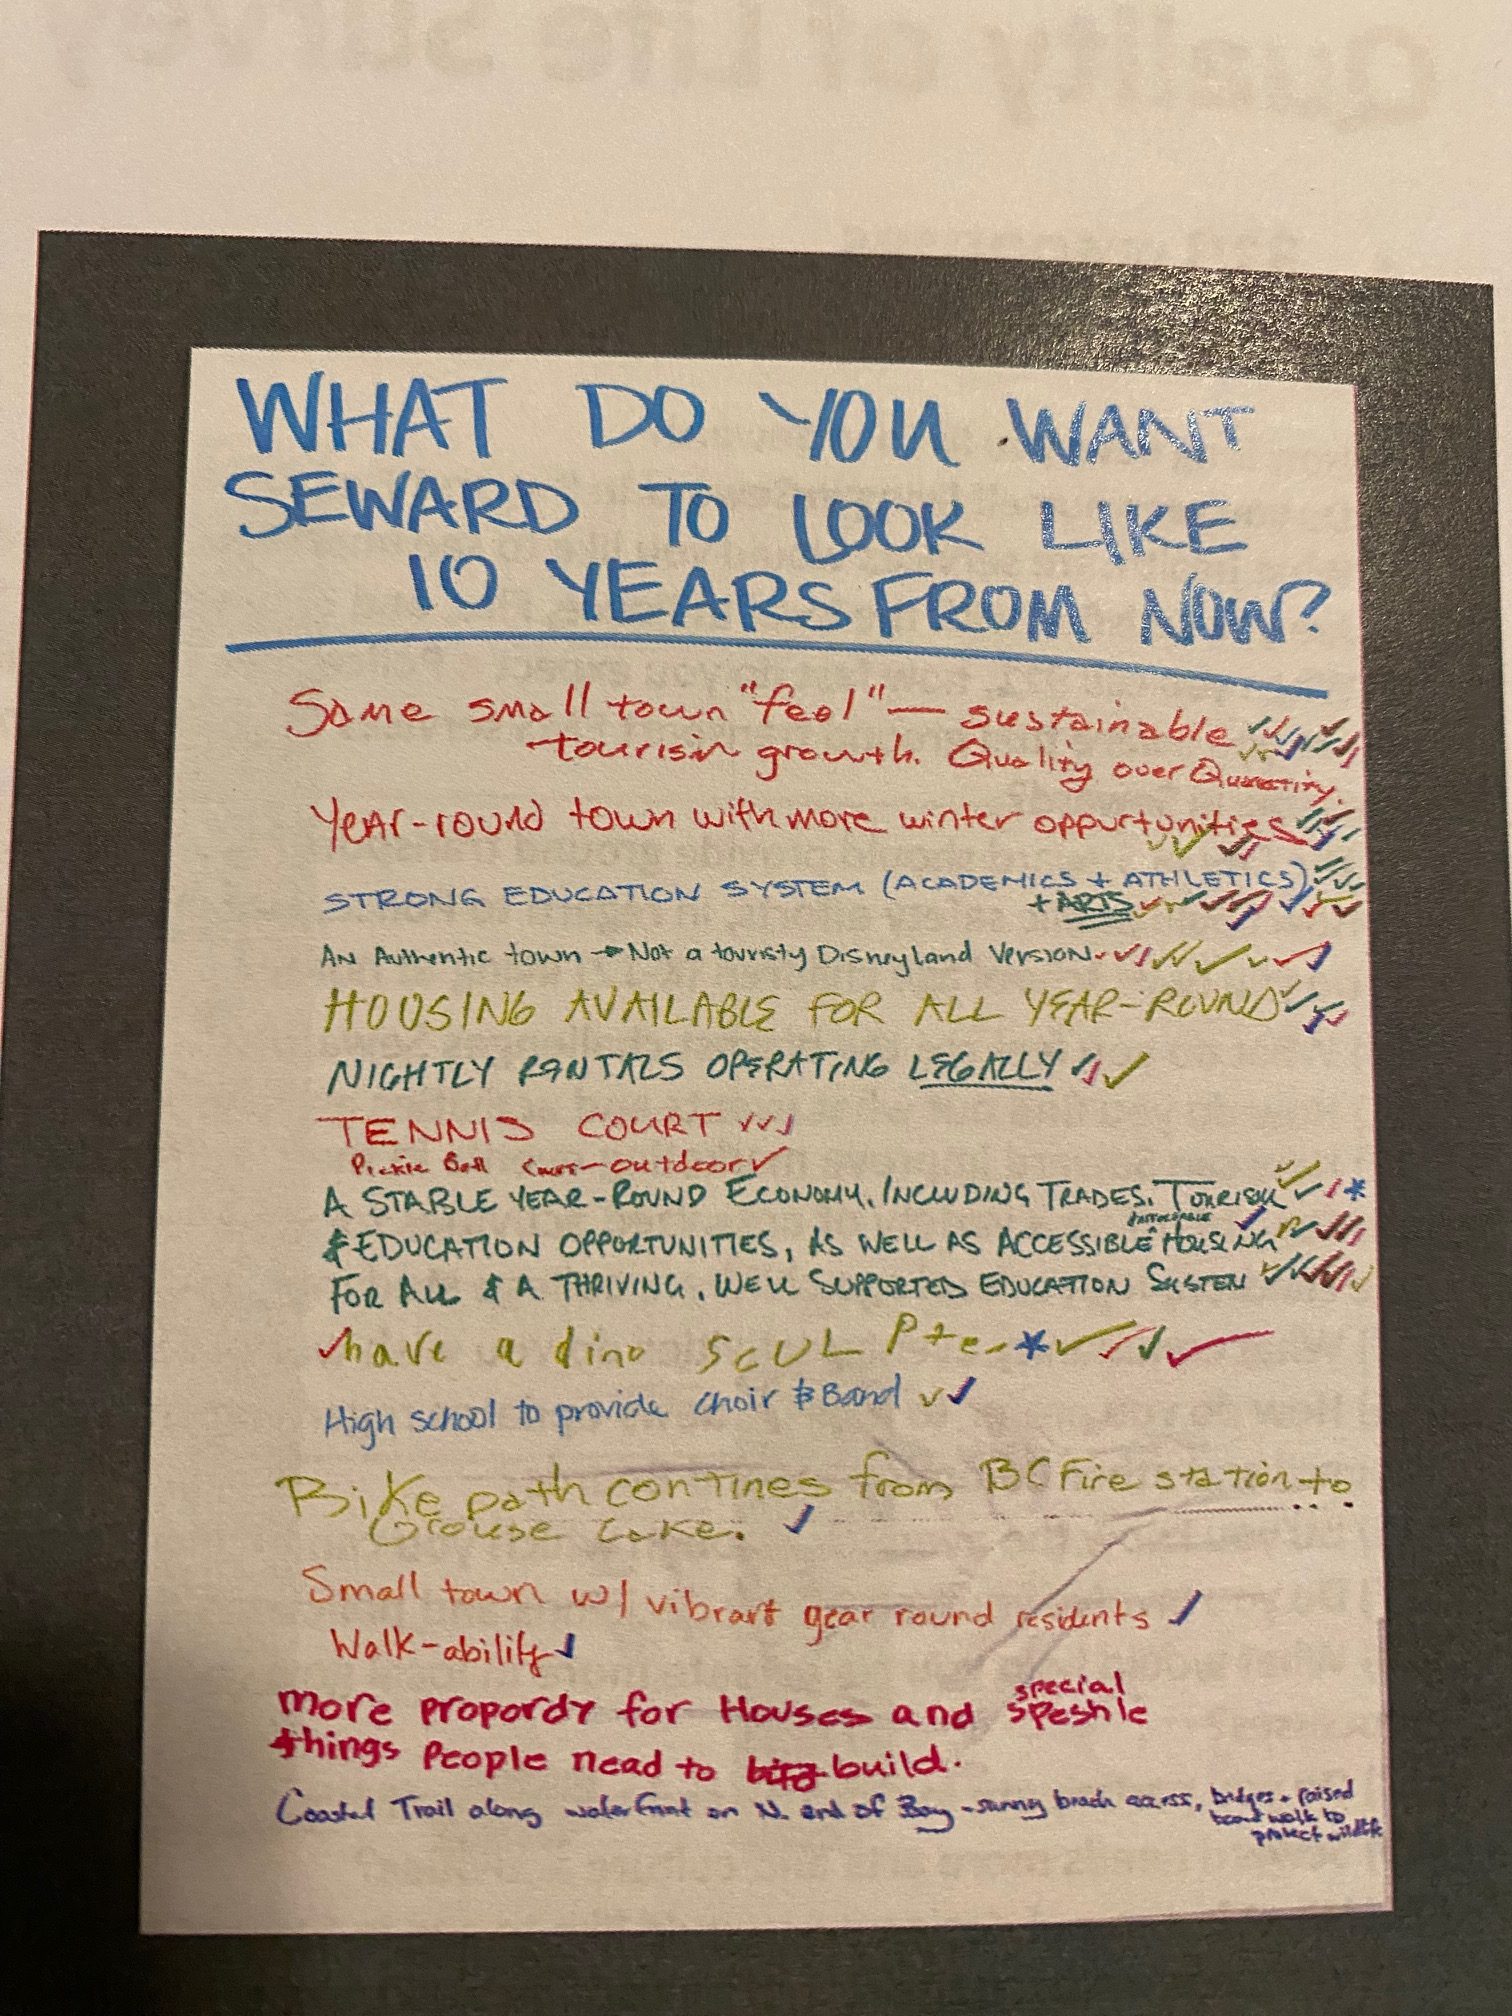 WHAT DO YOU WANT
SEWARD TO LOOK LIKE
10 YEARS FROM NOW?
Same small town "feel" — sustainable
tourism growth. Quality over Quantity.
Year-round town with more winter oppurtunities
STRONG EDUCATION SYSTEM (ACADEMICS + ATHLETICS)
+ ARTS
An Authentic town → Not a touristy Disneyland Version
HOUSING AVAILABLE FOR ALL YEAR-ROUND
NIGHTLY RENTALS OPERATING LEGALLY
TENNIS COURT
Pickle Ball - outdoor
A STABLE YEAR-ROUND ECONOMY, INCLUDING TRADES, TOURISM
& EDUCATION OPPORTUNITIES, AS WELL AS ACCESSIBLE ^ HOUSING
FOR ALL & A THRIVING, WELL SUPPORTED EDUCATION SYSTEM
have a dino
High school to provide choir & Band
Bike path contines from BC Fire station to
Grouse Lake.
Small town w/ vibrant year round residents
Walk-ability
special
more propordy for Houses and speshle
things people nead to build.
Coastal Trail along waterfront on N. end of Bay - sunny beach access, bridges + raised
board walk to
protect wildlife